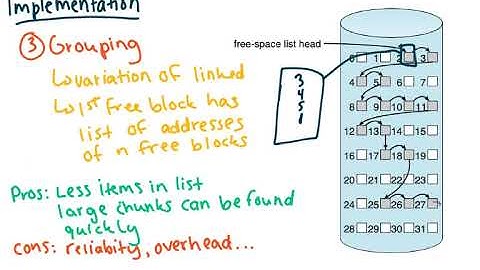 Implementation
③ Grouping
↳variation of linked
↳1st free block has
list of addresses
of n free blocks
Pros: Less items in list
large chunks can be found
quickly
cons: reliabity, overhead...
free-space list head
3
4
5
0 1 2 3
4 5 6 7
8 9 10 11
12 13 14 15
16 17 18 19
20 21 22 23
24 25 26 27
28 29 30 31